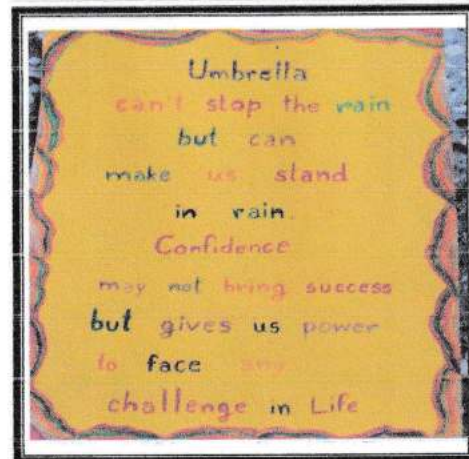 Umbrella
can't stop the rain
but can
make us stand
in rain.
Confidence
may not bring success
but gives us power
to face any
challenge in Life